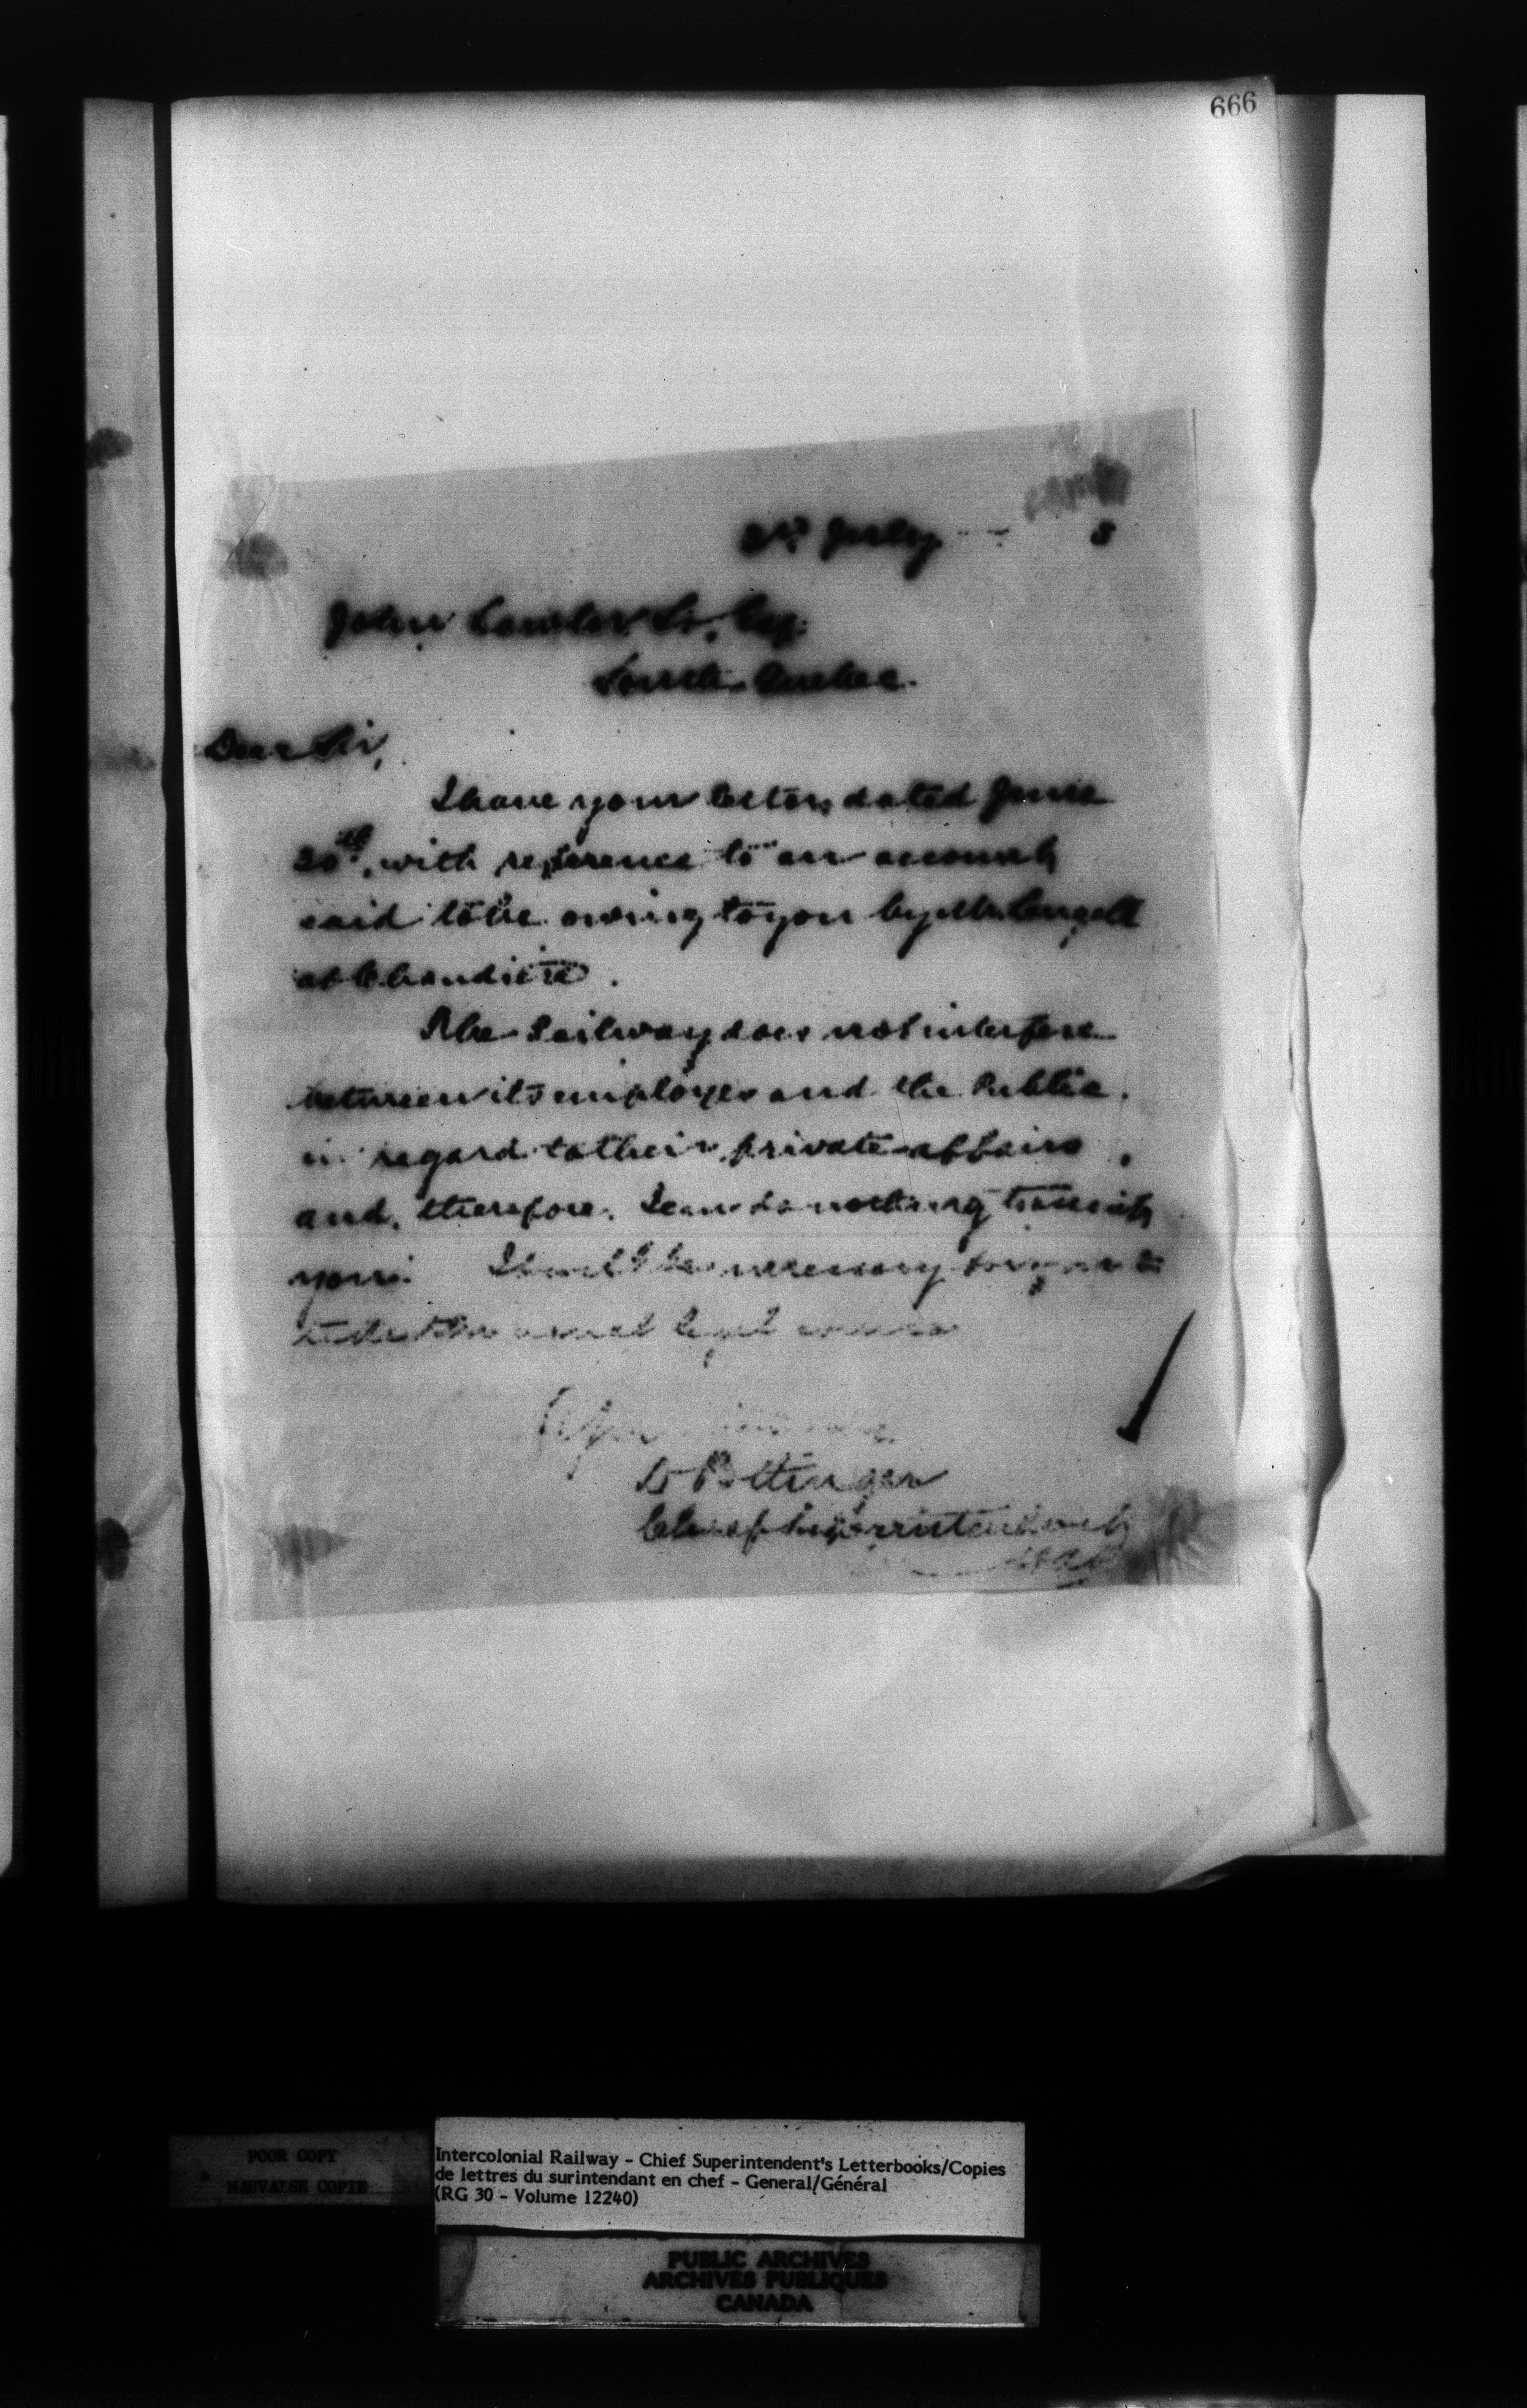 666
July 8
John Lawlor Sr. Esq.
South Quebec.
Dear Sir,
I have your letter, dated June
20th, with reference to an account
said to be owing to you by Mr.
at Chaudiere.
The Railway does not interfere
between its employes and the Public,
in regard to their private affairs,
and, therefore, I can do nothing to assist
you. It will be necessary for you to
take the usual legal course
D Pottinger
Chief Superintendent
POOR COPY
MAUVAISE COPIE
Intercolonial Railway - Chief Superintendent's Letterbooks/Copies
de lettres du surintendant en chef - General/Général
(RG 30 - Volume 12240)
PUBLIC ARCHIVES
ARCHIVES PUBLIQUES
CANADA